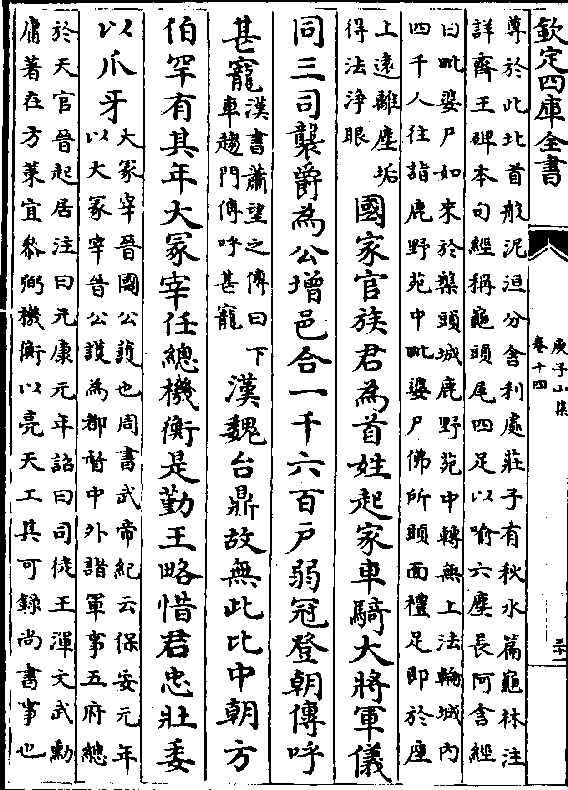 欽定四庫全書
庾子山集
卷十四
尊於此北首般泥洹分舍利處莊子有秋水篇龜林注
詳齊王碑本句經稱龜頭尾四足以喻六塵長阿含經
曰毗婆尸如來於槃頭城鹿野苑中轉無上法輪城內
四千人往詣鹿野苑中毗婆尸佛所頭面禮足即於座
上遠離塵垢
得法淨眼
國家官族君為首姓起家車騎大將軍儀
同三司襲爵為公增邑合一千六百戶弱冠登朝傳呼
甚寵
漢書蕭望之傳曰下
車趨門傳呼甚寵
漢魏台鼎故無此比中朝方
伯罕有其年大冢宰任總機衡是勤王略惜君忠壯委
以爪牙
大冢宰晉國公護也周書武帝紀云保安元年
以大冢宰晉公護為都督中外諸軍事五府總
於天官晉起居注曰元康元年詔曰司徒王渾文武勳
庸著在方策宜叅弼機衡以亮天工其可錄尚書事也